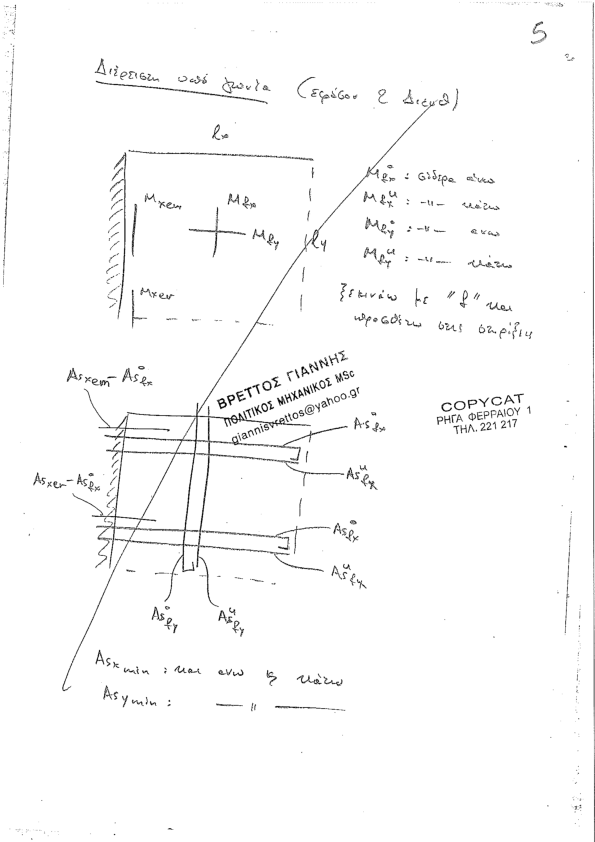 5
Διέρειση υπό γωνία (εφόσον 2 Διευθ)
lx
Mxem Mfx
Mfy ly
Mxer
Mfx° : σίδερα άνω
Mfxᵘ : -〃- κάτω
Mfy° : -〃- ανω
Mfyᵘ : -〃- κάτω
ξεκινάω με "f" και
προσθέτω στις στηρίξεις
ΒΡΕΤΤΟΣ ΓΙΑΝΝΗΣ
ΠΟΛΙΤΙΚΟΣ ΜΗΧΑΝΙΚΟΣ MSc
giannisvrettos@yahoo.gr
COPYCAT
ΡΗΓΑ ΦΕΡΡΑΙΟΥ 1
ΤΗΛ. 221 217
Asxem-Asfx°
Asfx°
Asfxᵘ
Asxer-Asfx°
Asfx°
Asfxᵘ
Asfy° Asfyᵘ
Asxmin : και ανω & κάτω
Asymin : — 〃 —